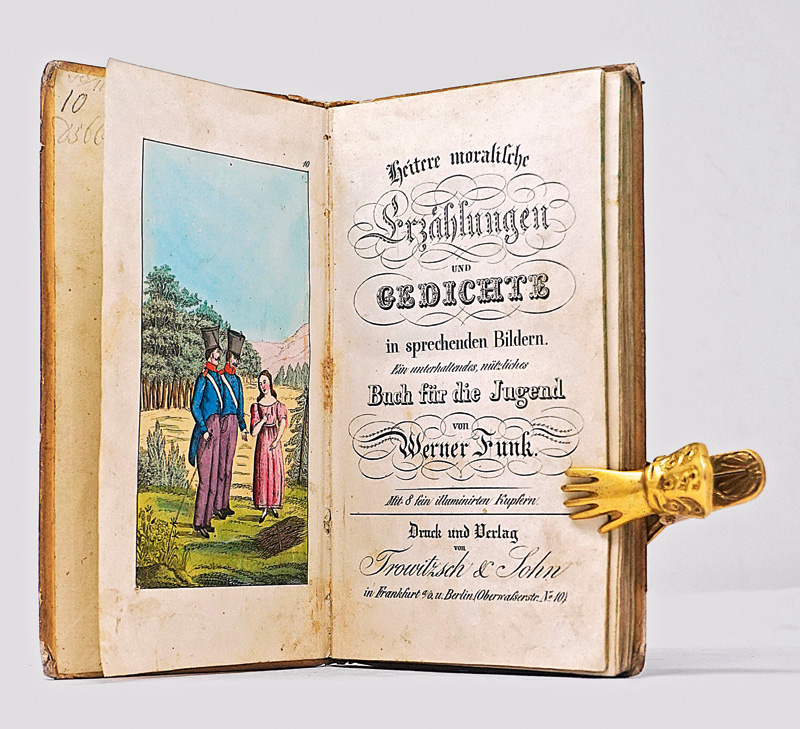 10
10
Heitere moralische
Erzählungen
UND
GEDICHTE
in sprechenden Bildern.
Ein unterhaltendes, nützliches
Buch für die Jugend
von
Werner Funk.
Mit 8 fein illuminirten Kupfern.
Druck und Verlag
von
Trowitzsch & Sohn
in Frankfurt a/o. u. Berlin (Oberwallserstr. No 10)